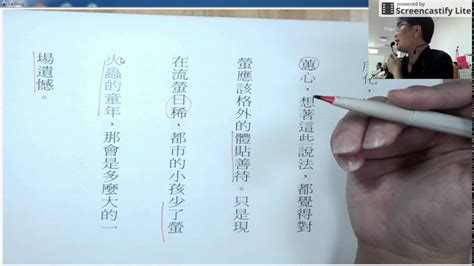 Ladibug
powered by
Screencastify Lite
蕙心，想著這些說法，都覺得對
螢應該格外的體貼善待。只是現
在流螢日稀，都市的小孩少了螢
火蟲的童年，那會是多麼大的一
場遺憾。